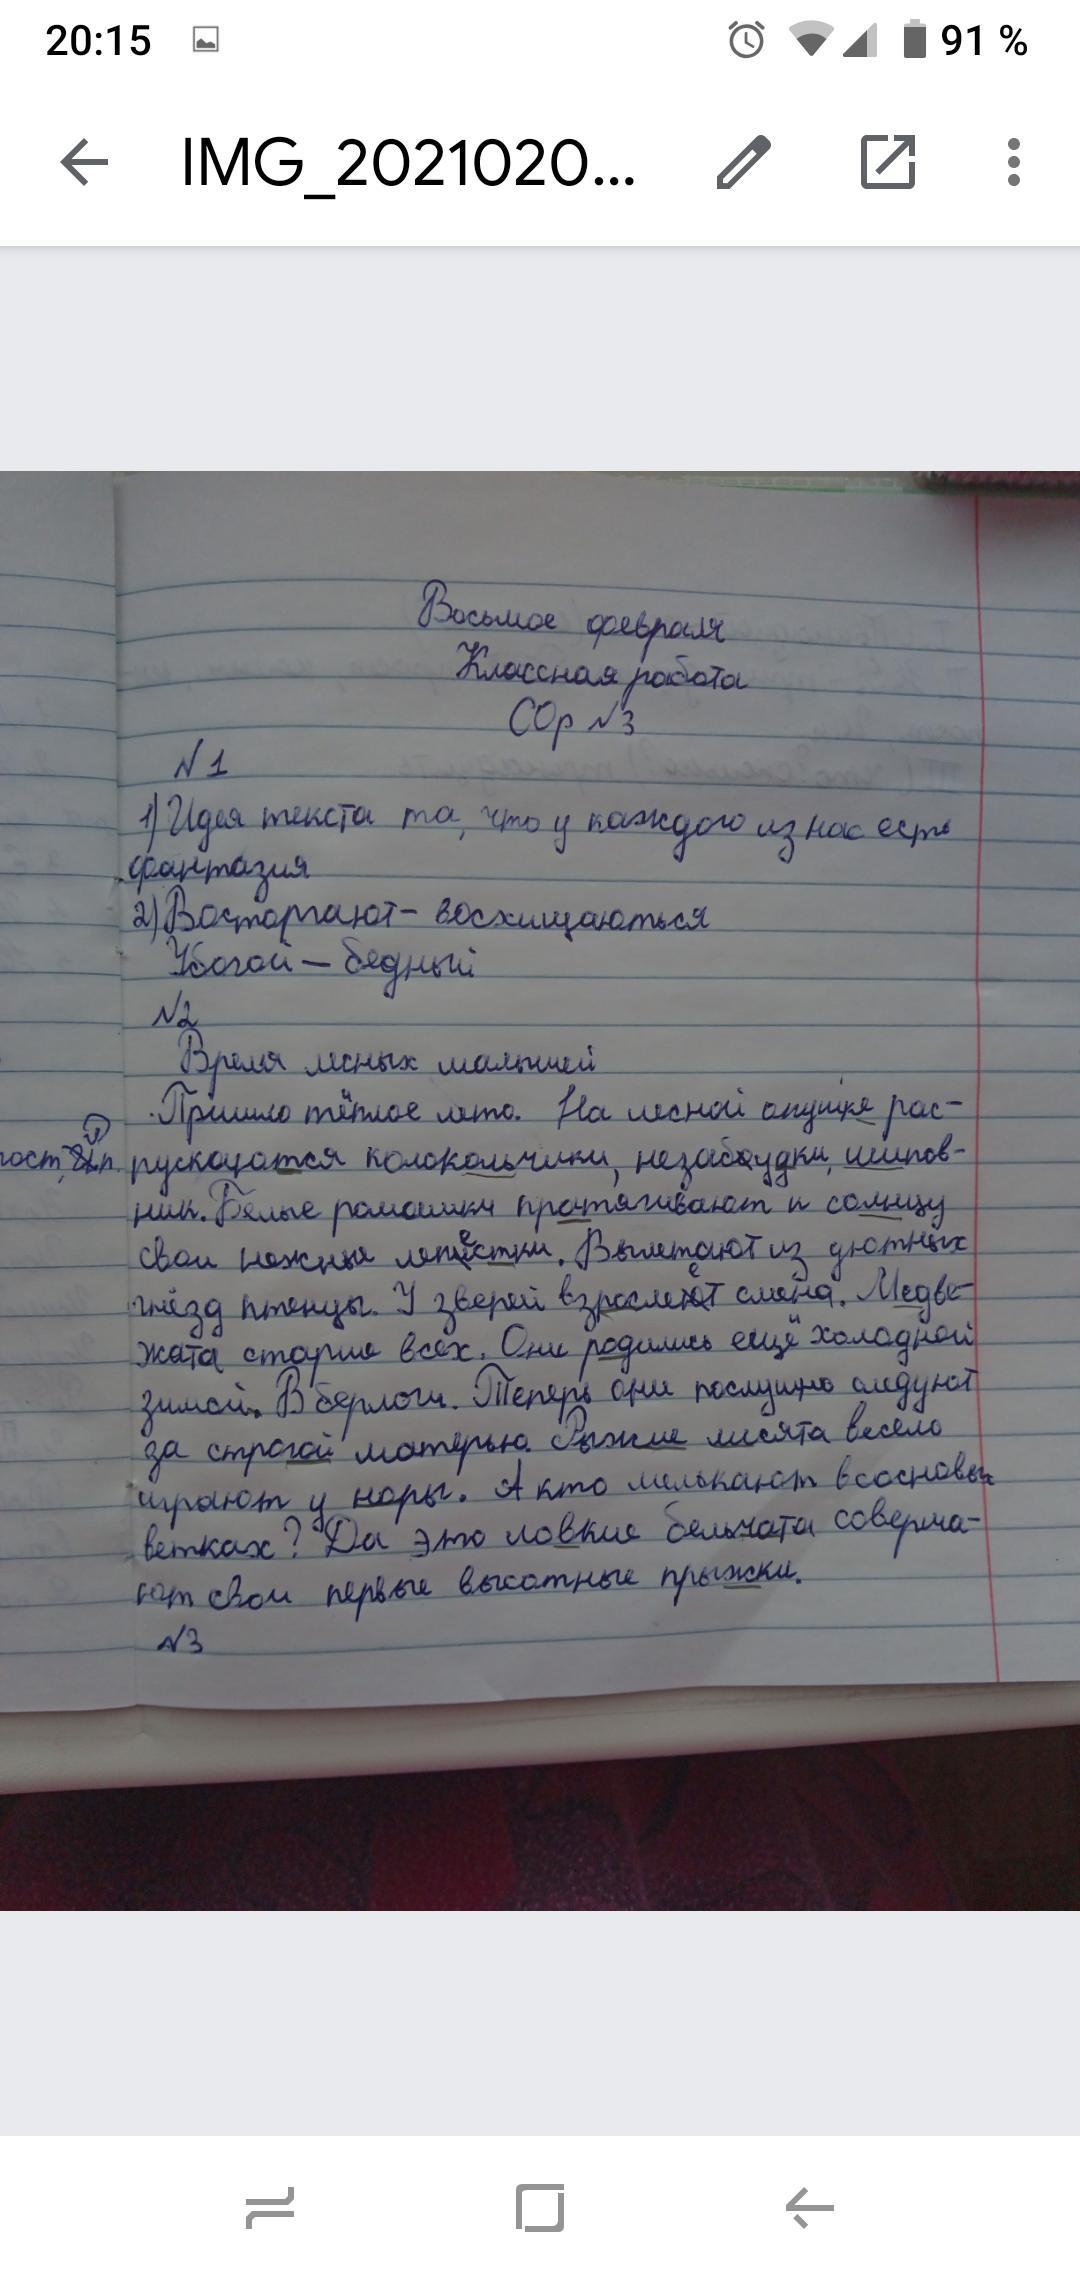 20:15
91 %
IMG_2021020...
Восьмое февраля
Классная работа
СОр №3
№1
1) Идея текста та, что у каждого из нас есть
фантазия
2) Восторгают - восхищаються
Убогой - бедный
№2
Время лесных малышей
Пришло тёплое лето. На лесной опушке рас-
рускаются колокольчики, незабудки, шипов-
ник. Белые ромашки протягивают к солнцу
свои нежные лепестки. Вылетают из уютных
гнёзд птенцы. У зверей взрослеет смена. Медве-
жата старше всех. Они родились ещё холодной
зимой. В берлоги. Теперь они послушно следуют
за строгой матерью. Рыжие лисята весело
играют у норы. А кто мелькают в сосновых
ветках? Да это ловкие бельчата соверша-
ют свои первые высотные прыжки.
№3